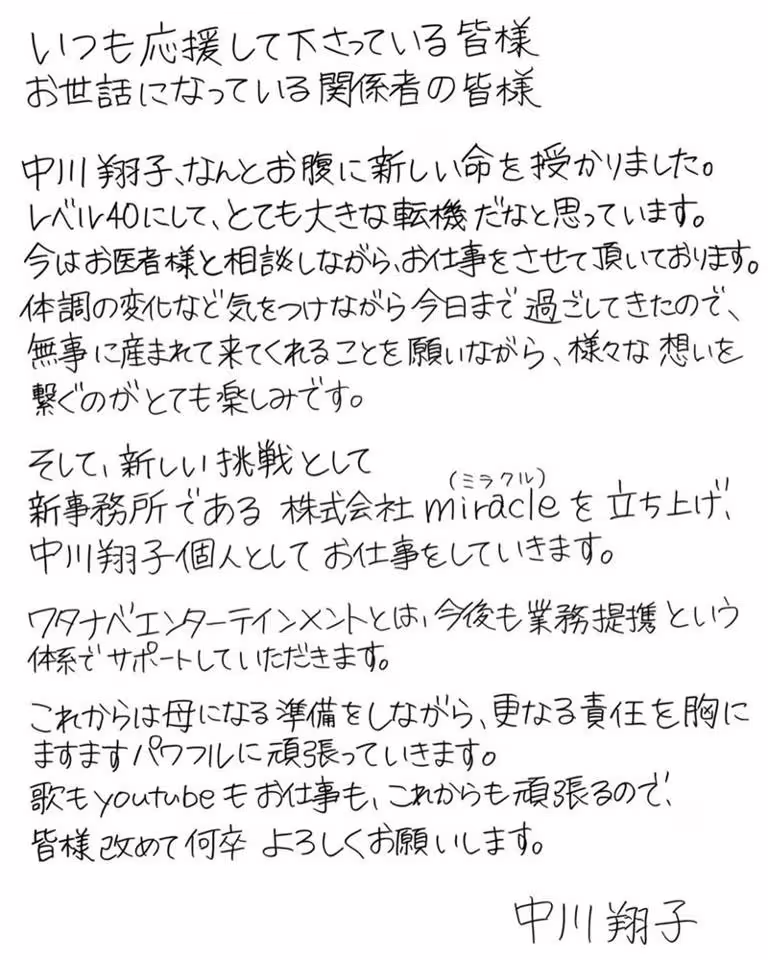 いつも応援して下さっている皆様
お世話になっている関係者の皆様
中川翔子、なんとお腹に新しい命を授かりました。
レベル40にして、とても大きな転機だなと思っています。
今はお医者様と相談しながら、お仕事をさせて頂いております。
体調の変化など気をつけながら今日まで過ごしてきたので、
無事に産まれて来てくれることを願いながら、様々な想いを
繋ぐのがとても楽しみです。
そして、新しい挑戦として
(ミラクル)
新事務所である 株式会社 miracleを立ち上げ、
中川翔子個人としてお仕事をしていきます。
ワタナベエンターテインメントとは、今後も業務提携という
体系でサポートしていただきます。
これからは母になる準備をしながら、更なる責任を胸に
ますますパワフルに頑張っていきます。
歌もyoutubeもお仕事も、これからも頑張るので、
皆様改めて何卒 よろしくお願いします。
中川翔子